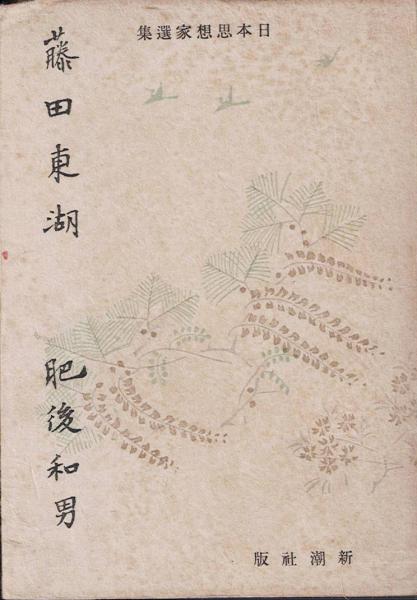 日本思想家選集
藤田東湖
肥後和男
新潮社版